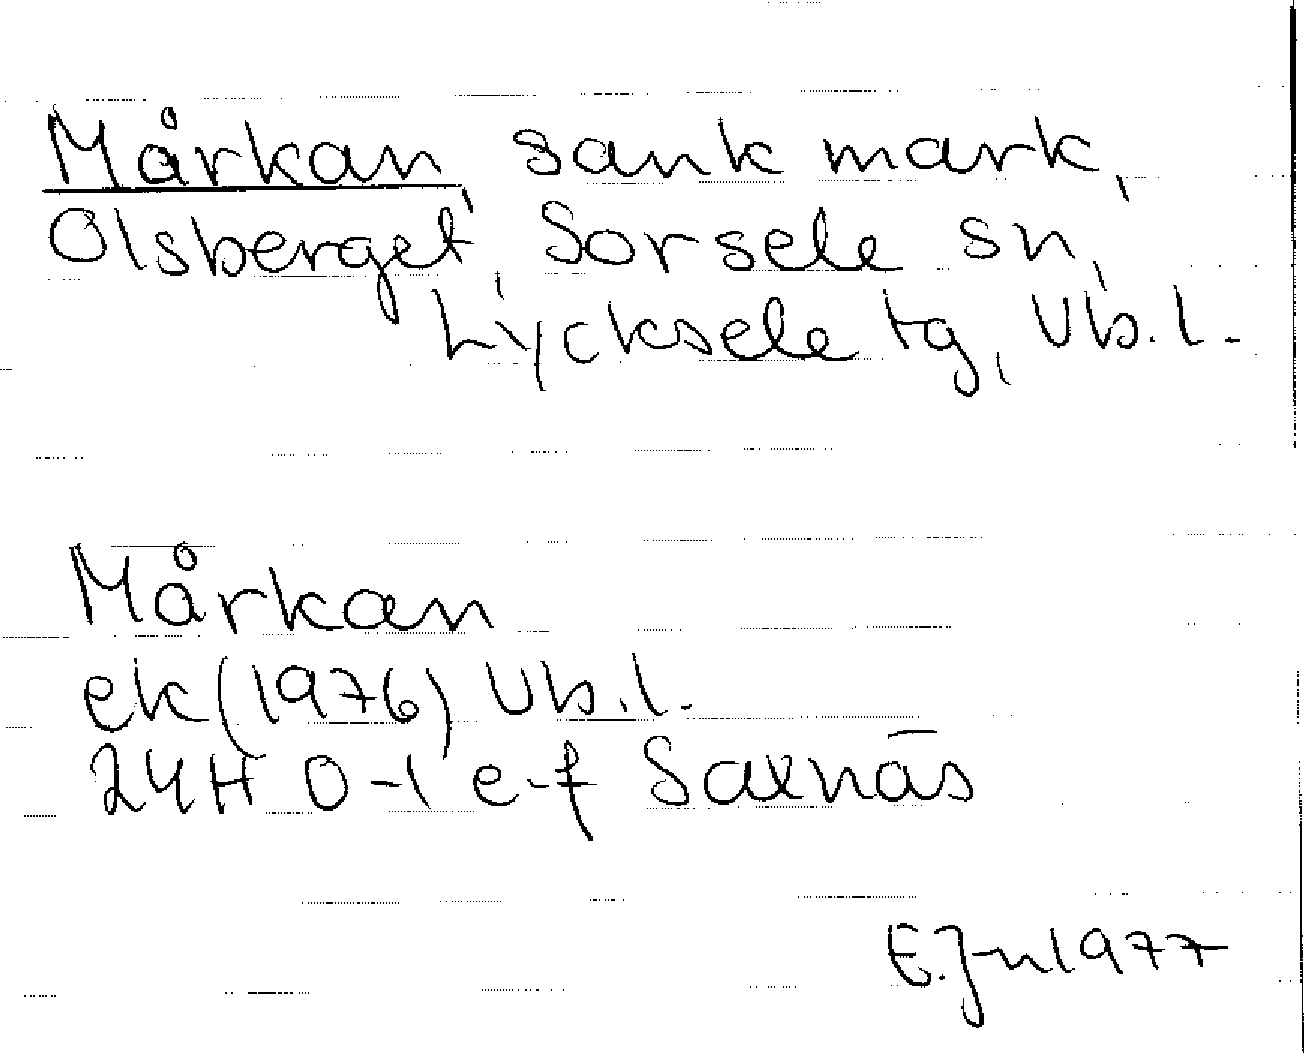 Mårkan, sank mark,
Olsberget, Sorsele sn,
Lycksele tg, Vb. l.
Mårkan
ek (1976) Vb. l.
24H 0-1 e-f Saxnäs
E. Jn 1977